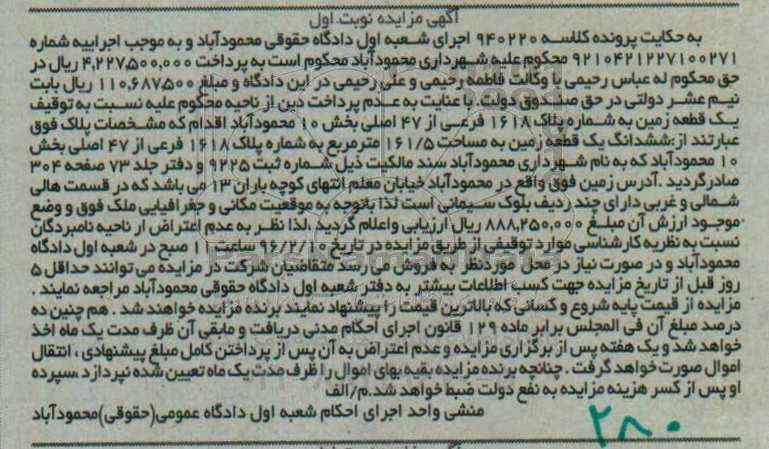 آگهی مزایده نوبت اول
به حکایت پرونده کلاسه ۹۴۰۲۲۰ اجرای شعبه اول دادگاه حقوقی محمودآباد و به موجب اجراییه شماره
۹۲۱۰۴۲۱۲۲۷۱۰۰۲۷۱ محکوم علیه شهرداری محمودآباد محکوم است به پرداخت ۴,۲۲۷,۵۰۰,۰۰۰ ریال در
حق محکوم له عباس رحیمی با وکالت فاطمه رحیمی و علی رحیمی در این دادگاه و مبلغ ۱۱۰,۶۸۷,۵۰۰ ریال بابت
نیم عشر دولتی در حق صندوق دولت. با عنایت به عدم پرداخت دین از ناحیه محکوم علیه نسبت به توقیف
یک قطعه زمین به شماره پلاک ۱۶۱۸ فرعی از ۴۷ اصلی بخش ۱۰ محمودآباد اقدام که مشخصات پلاک فوق
عبارتند از:ششدانگ یک قطعه زمین به مساحت ۱۶۱/۵ مترمربع به شماره پلاک ۱۶۱۸ فرعی از ۴۷ اصلی بخش
۱۰ محمودآباد که به نام شهرداری محمودآباد سند مالکیت ذیل شماره ثبت ۹۲۲۵ و دفتر جلد ۷۳ صفحه ۳۰۴
صادرگردید .آدرس زمین فوق واقع در محمودآباد خیابان معلم انتهای کوچه باران ۱۳ می باشد که در قسمت هالی
شمالی و غربی دارای چند ردیف بلوک سیمانی است لذا باتوجه به موقعیت مکانی و جغرافیایی ملک فوق و وضع
موجود ارزش آن مبلغ ۸۸۸,۲۵۰,۰۰۰ ریال ارزیابی واعلام گردید .لذا نظر به عدم اعتراض از ناحیه نامبردگان
نسبت به نظریه کارشناسی موارد توقیفی از طریق مزایده در تاریخ ۹۶/۲/۱۰ ساعت ۱۱ صبح در شعبه اول دادگاه
محمودآباد و در صورت نیاز در محل موردنظر به فروش می رسد متقاضیان شرکت در مزایده می توانند حداقل ۵
روز قبل از تاریخ مزایده جهت کسب اطلاعات بیشتر به دفتر شعبه اول دادگاه حقوقی محمودآباد مراجعه نمایند .
مزایده از قیمت پایه شروع و کسانی که بالاترین قیمت را پیشنهاد نمایند برنده مزایده خواهند شد . هم چنین ده
درصد مبلغ آن فی المجلس برابر ماده ۱۲۹ قانون اجرای احکام مدنی دریافت و مابقی آن ظرف مدت یک ماه اخذ
خواهد شد و یک هفته پس از برگزاری مزایده و عدم اعتراض به آن پس از پرداختن کامل مبلغ پیشنهادی ، انتقال
اموال صورت خواهد گرفت . چنانچه برنده مزایده بقیه بهای اموال را ظرف مدت یک ماه تعیین شده نپردازد ،سپرده
او پس از کسر هزینه مزایده به نفع دولت ضبط خواهد شد.م/الف
منشی واحد اجرای احکام شعبه اول دادگاه عمومی(حقوقی)محمودآباد
۲۸۰